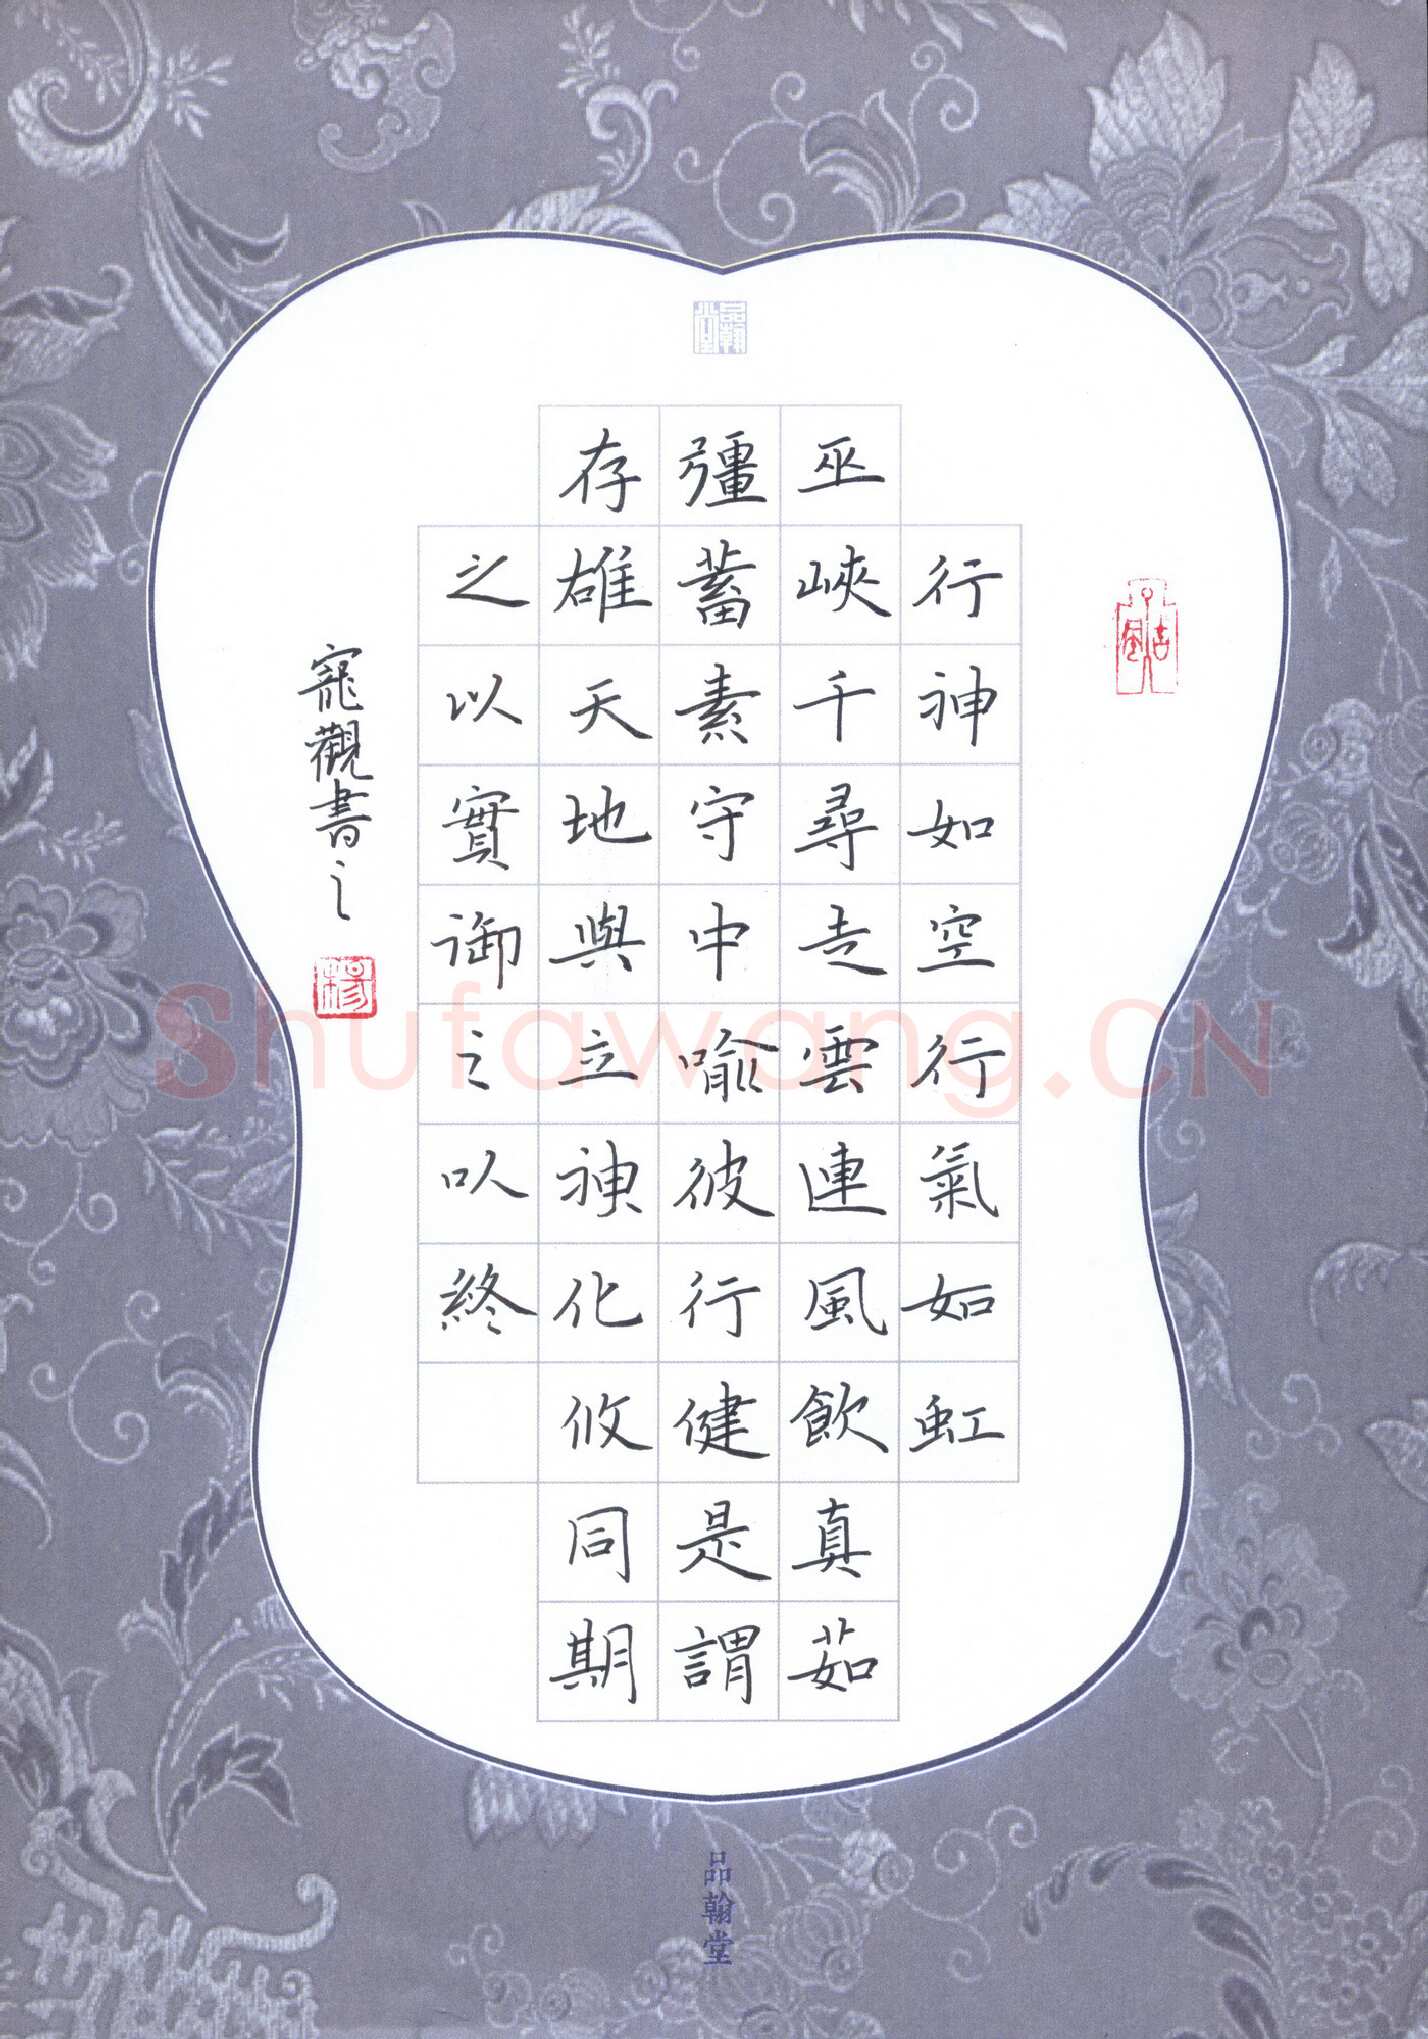 行神如空行氣如虹
巫峽千尋走雲連風飲真茹
彊蓄素守中喻彼行健是謂
存雄天地與立神化攸同期
之以實御之以終
寵觀書之
品翰堂
品翰堂
Shufawang.CN